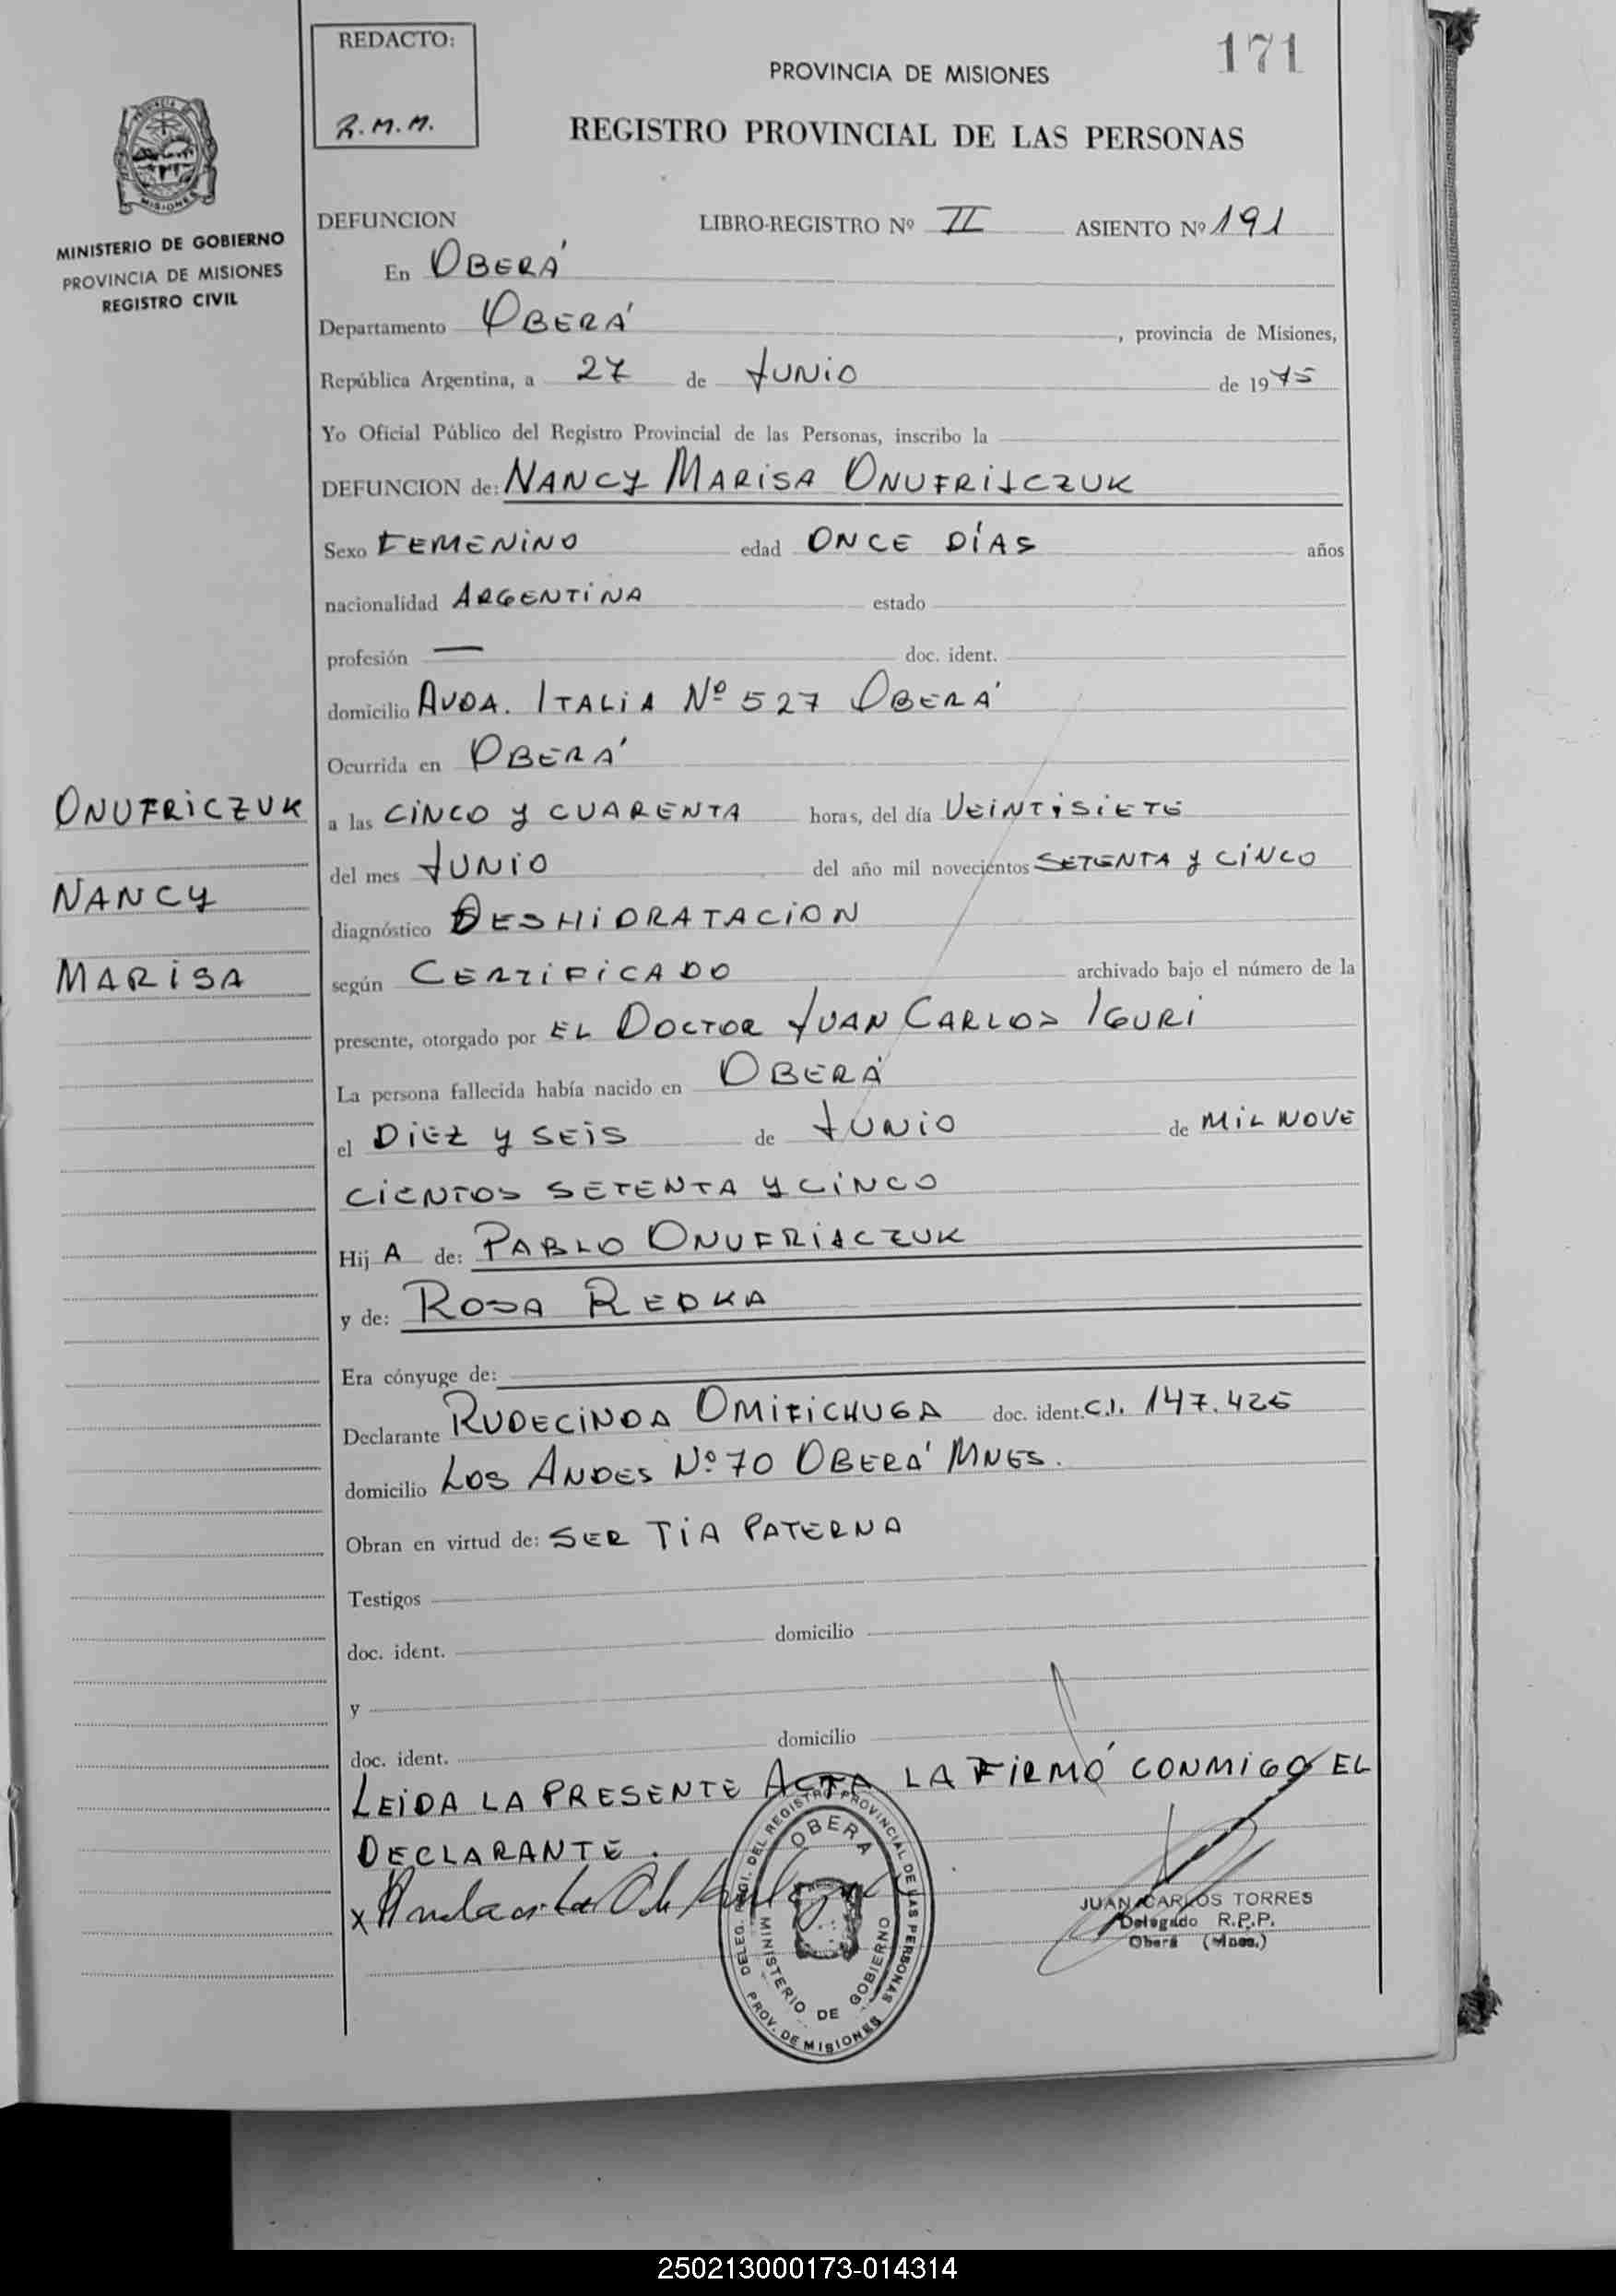 REDACTO:
R.M.M.
171
PROVINCIA DE MISIONES
REGISTRO PROVINCIAL DE LAS PERSONAS
MINISTERIO DE GOBIERNO
PROVINCIA DE MISIONES
REGISTRO CIVIL
DEFUNCION LIBRO-REGISTRO Nº II ASIENTO Nº 191
En OBERÁ
Departamento OBERÁ, provincia de Misiones,
República Argentina, a 27 de JUNIO de 1975
Yo Oficial Público del Registro Provincial de las Personas, inscribo la
DEFUNCION de: NANCY MARISA ONUFRIJCZUK
Sexo FEMENINO edad ONCE DÍAS años
nacionalidad ARGENTINA estado
profesión — doc. ident.
domicilio AVDA. ITALIA Nº 527 OBERÁ
Ocurrida en OBERÁ
ONUFRICZUK
NANCY
MARISA
a las CINCO Y CUARENTA horas, del día VEINTISIETE
del mes JUNIO del año mil novecientos SETENTA Y CINCO
diagnóstico DESHIDRATACION
según CERTIFICADO archivado bajo el número de la
presente, otorgado por EL DOCTOR JUAN CARLOS IGURI
La persona fallecida había nacido en OBERÁ
el DIEZ Y SEIS de JUNIO de MIL NOVE
CIENTOS SETENTA Y CINCO
Hij A de: PABLO ONUFRIJCZUK
y de: ROSA REDKA
Era cónyuge de:
Declarante RUDECINDA OMIFICHUGA doc. ident. C.I. 147.426
domicilio LOS ANDES Nº 70 OBERÁ MNES.
Obran en virtud de: SER TIA PATERNA
Testigos
doc. ident. domicilio
y
doc. ident. domicilio
LEIDA LA PRESENTE ACTA LA FIRMÓ CONMIGO EL
DECLARANTE.
x
DELEG. REGI. DEL REGISTRO PROVINCIAL DE LAS PERSONAS
OBERA
MINISTERIO DE GOBIERNO
PROV. DE MISIONES
JUAN CARLOS TORRES
Delegado R.P.P.
Oberá (Mnes.)
250213000173-014314